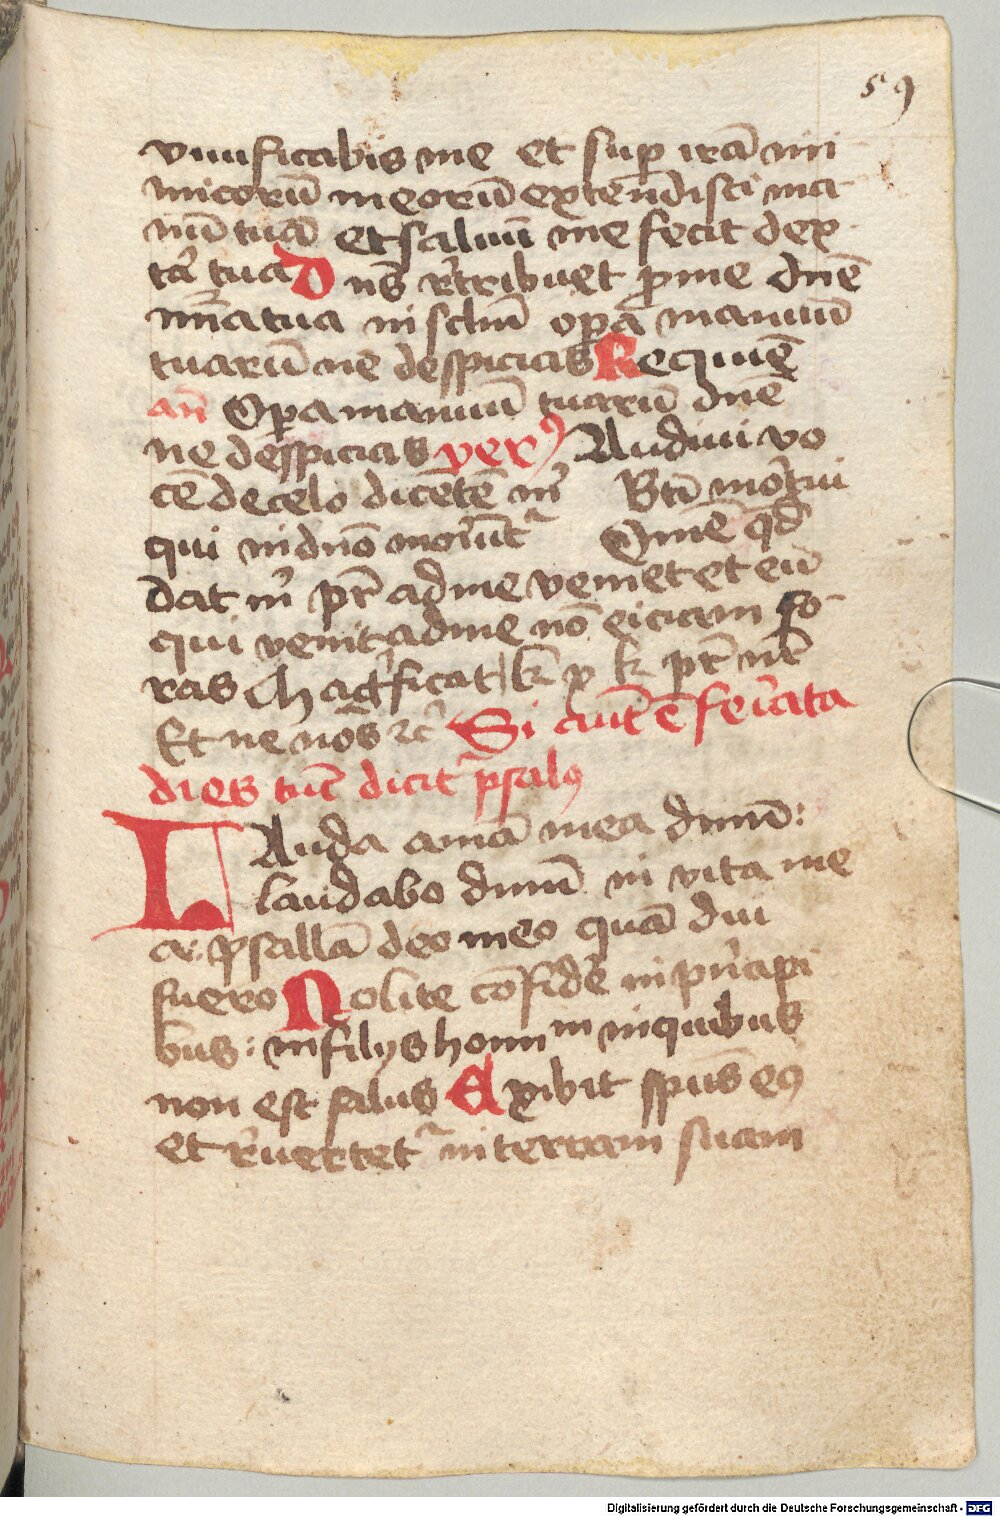 59
viuificabis me et sup irā ini
micorū meorū extendisti ma
nū tuā et saluū me fecit dex
ta tua Dns retribuet pro me dnē
mīa tua in sclm opa manuū
tuarū ne despicias Requiē
an Opa manuū tuarū dnē
ne despicias vers9 Audiui vo
cē de celo dicētē m Bti mortui
qui in dno moriunt Omē qd
dat m pr ad me veniet et eū
qui venit ad me nō eiciam fo
ras Magficat k p k pr nr
Et ne nos rc Si aut ē feriata
dies tūc dicit psalm9
LAuda aīmā mea dnm:
laudabo dnm in vita me
a: psallā deo meo quā diu
fuero Nolite cōfidē in pncipi
bus: in filys homīm in quibus
non est salus Exibit spūs eo9
et reuertet in terram suam
Digitalisierung gefördert durch die Deutsche Forschungsgemeinschaft - DFG